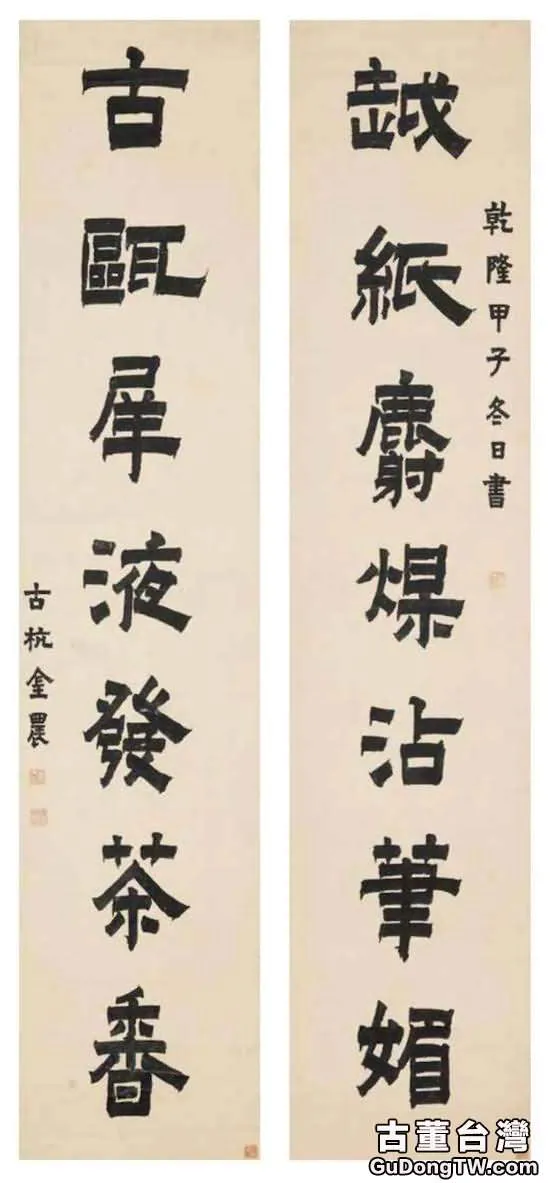 乾隆甲子冬日書
越紙麝煤沾筆媚
古甌犀液發茶香
古杭金農
古董台灣
GuDongTW.com